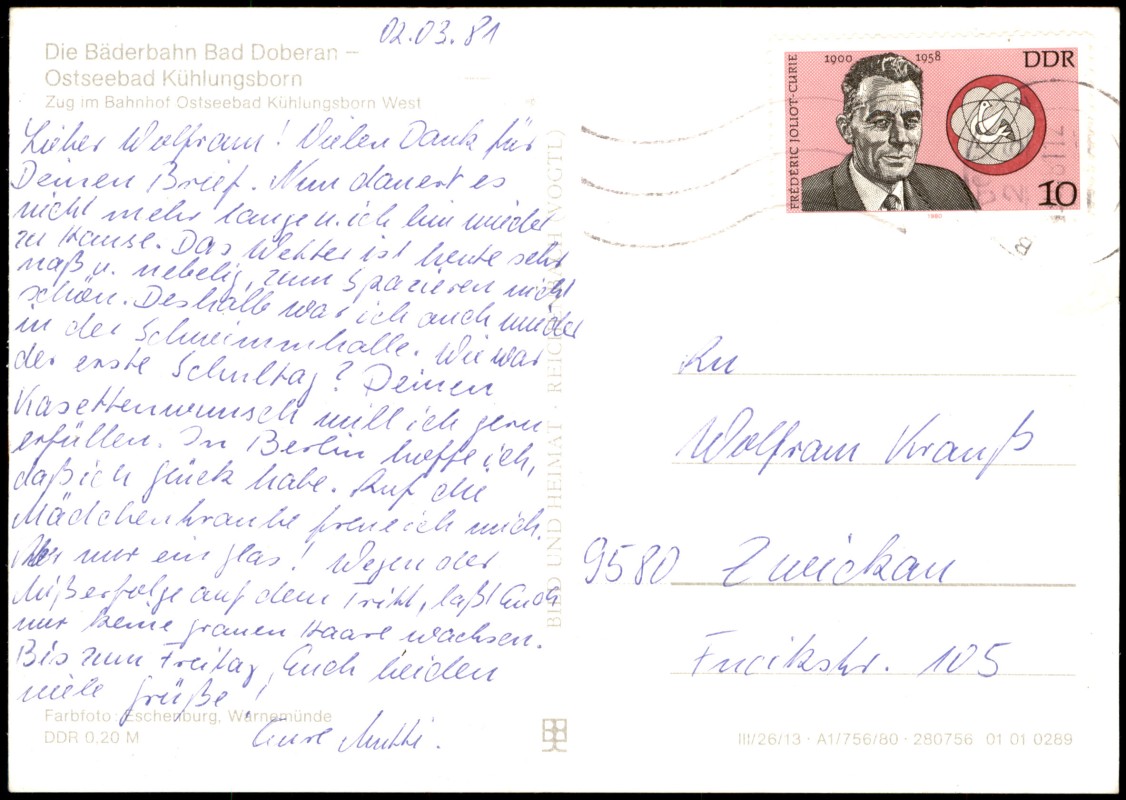 02.03.81
Die Bäderbahn Bad Doberan –
Ostseebad Kühlungsborn
Zug im Bahnhof Ostseebad Kühlungsborn West
Lieber Wolfram! Vielen Dank für
Deinen Brief. Nun dauert es
nicht mehr lange u. ich bin wieder
zu Hause. Das Wetter ist heute sehr
naß u. nebelig, zum Spazieren nicht
schön. Deshalb war ich auch wieder
in der Schwimmhalle. Wie war
der erste Schultag? Deinen
Kasettenwunsch will ich gern
erfüllen. In Berlin hoffe ich,
daß ich Glück habe. Auf die
Mädchentraube freue ich mich.
Aber nur ein Glas! Wegen der
Mißerfolge auf dem Tritt, laßt Euch
nur keine grauen Haare wachsen.
Bis zum Freitag, Euch beiden
viele Grüße!
Eure Mutti.
Farbfoto: Eschenburg, Warnemünde
DDR 0,20 M
BILD UND HEIMAT · REICHENBACH (VOGTL)
FRÉDÉRIC JOLIOT-CURIE
1900 1958
DDR
10
1980
An
Wolfram Krauß
9580 Zwickau
Fucikstr. 105
III/26/13 · A1/756/80 · 280756 01 01 0289